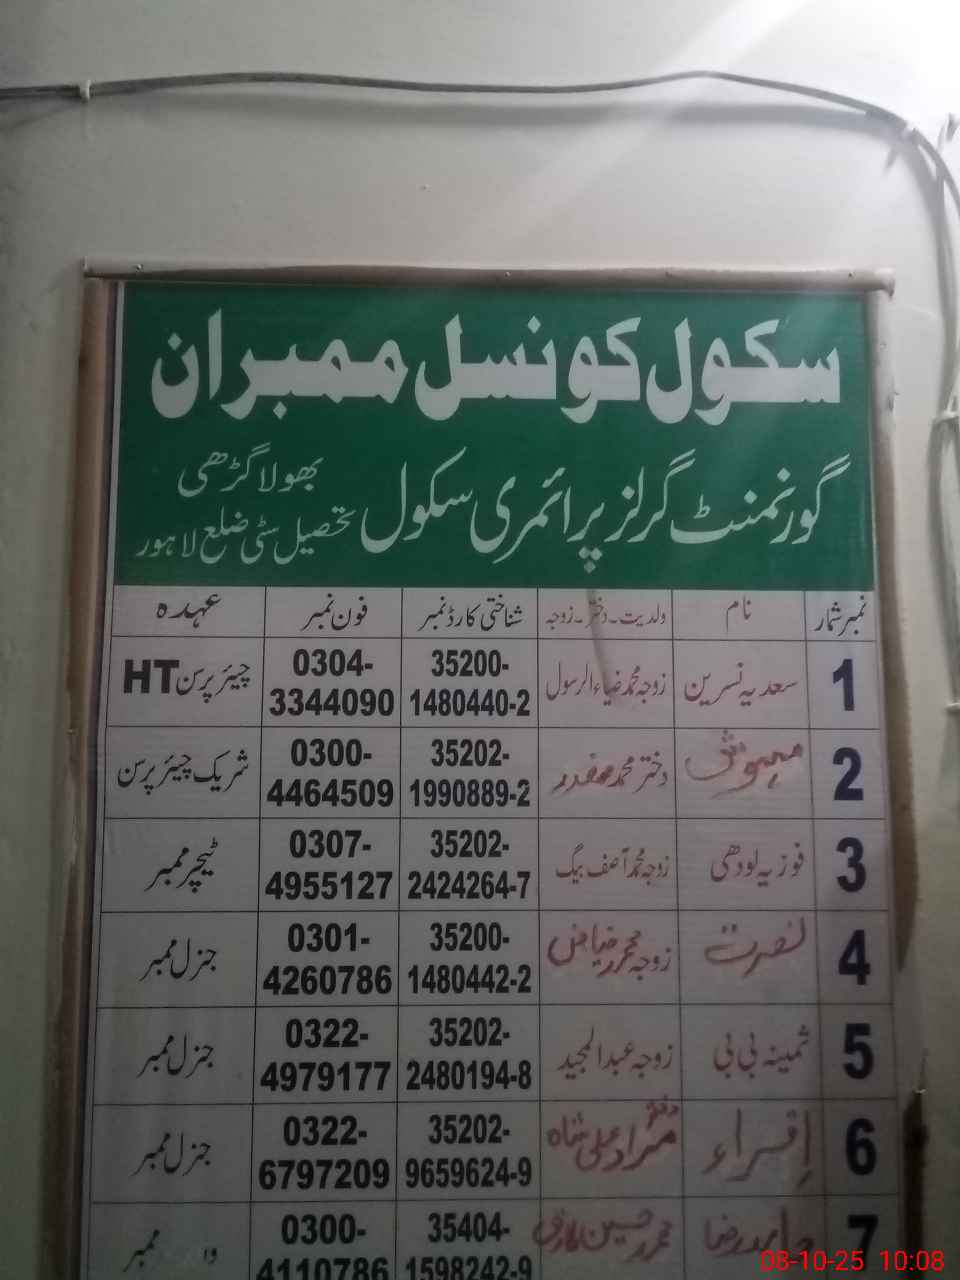 سکول کونسل ممبران
گورنمنٹ گرلز پرائمری سکول بھولا گڑھی
تحصیل سٹی ضلع لاہور
نمبر شمار نام ولدیت۔دختر۔زوجہ شناختی کارڈ نمبر فون نمبر عہدہ
1 سعدیہ نسرین زوجہ محمد ضیاء الرسول 35200-1480440-2 0304-3344090 چیئر پرسن HT
2 مہوش دختر محمد صفدر 35202-1990889-2 0300-4464509 شریک چیئر پرسن
3 فوزیہ لودھی زوجہ محمد آصف بیگ 35202-2424264-7 0307-4955127 ٹیچر ممبر
4 نصرت زوجہ محمد ریاض 35200-1480442-2 0301-4260786 جنرل ممبر
5 ثمینہ بی بی زوجہ عبدالمجید 35202-2480194-8 0322-4979177 جنرل ممبر
6 اقراء دختر مراد علی شاہ 35202-9659624-9 0322-6797209 جنرل ممبر
7 رضا محمد حسین 35404-1598242-9 0300-4110786 ممبر
08-10-25 10:08